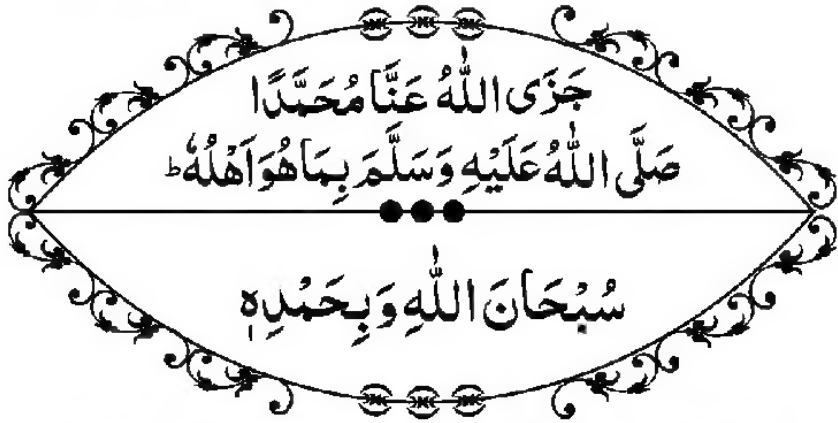 جَزَى اللّٰهُ عَنَّا مُحَمَّدًا
صَلَّى اللّٰهُ عَلَيْهِ وَسَلَّمَ بِمَا هُوَ اَهْلُهٗ ؕ
سُبْحَانَ اللّٰهِ وَبِحَمْدِهٖ